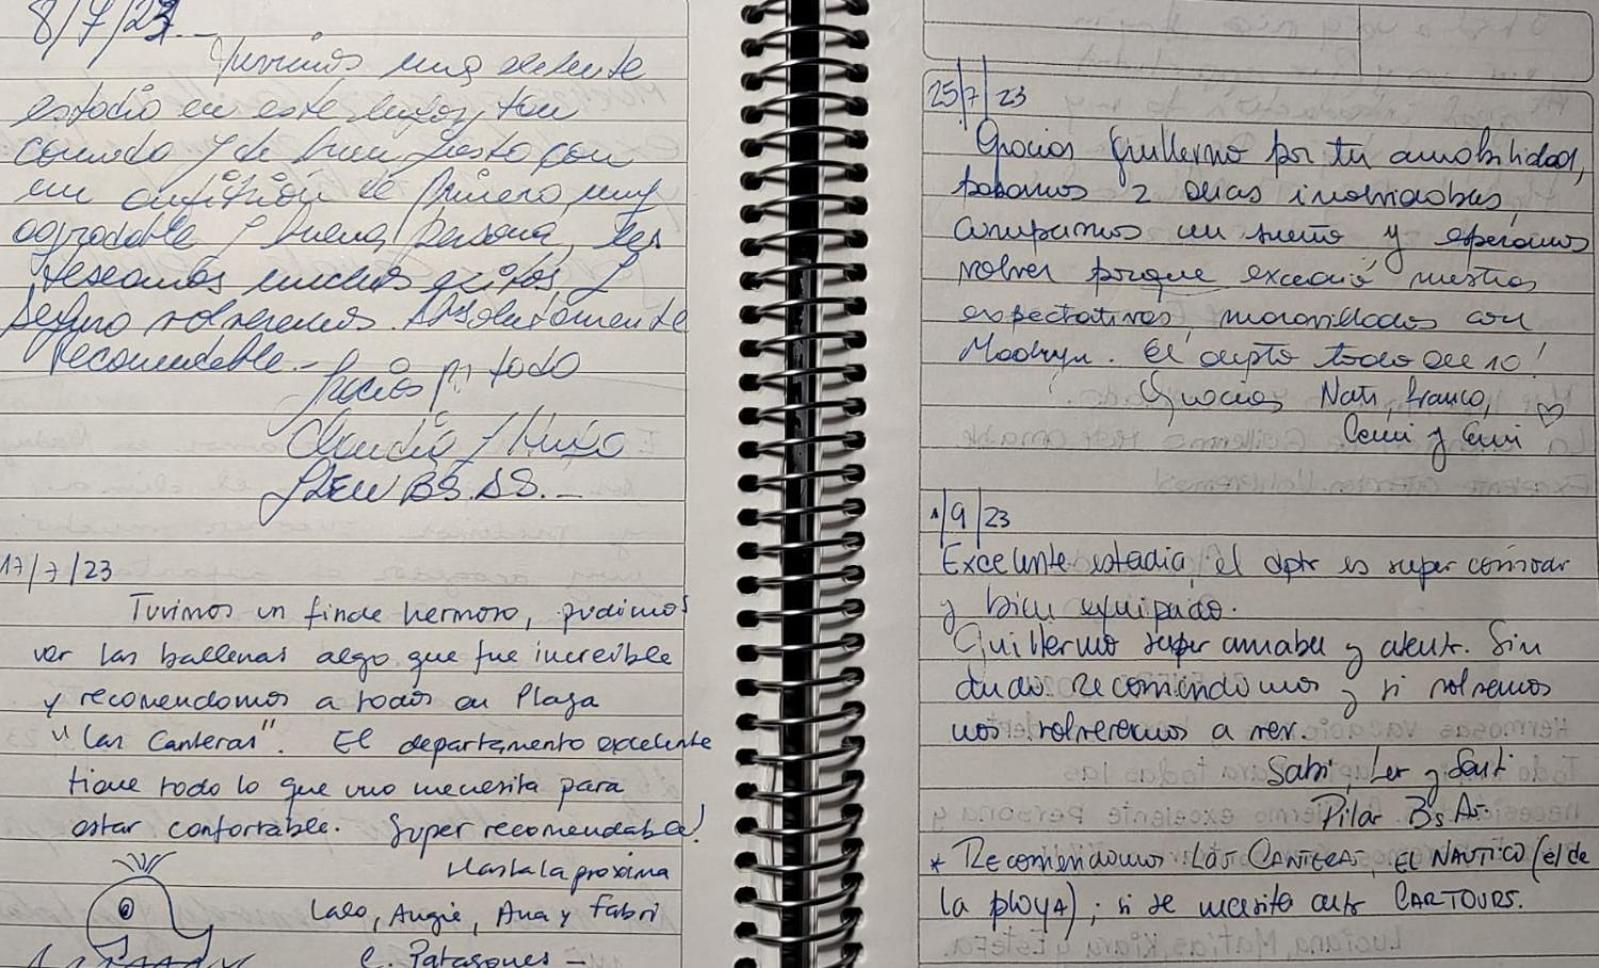 8/7/23.-
Tuvimos muy exelente
estadia en este lugar, tan
comodo y de buen gusto con
un anfitrión de primera, muy
agradable y buena persona, les
deseamos muchos exitos. Y
seguro volveremos. Absolutamente
recomendable.-
Gracias p. todo
Claudia y Hugo
BS.AS.-
17/7/23
Tuvimos un finde hermoso, pudimos
ver las ballenas algo que fue increible
y recomendamos a todos en Playa
"Las Canteras". El departamento excelente
tiene todo lo que uno necesita para
estar confortable. Super recomendable!
Hasta la proxima
Lalo, Angie, Ana y Fabri
C. Patagones -
25/7/23
Gracias Guillermo por tu amabilidad,
pasamos 2 dias inolvidables,
cumplimos un sueño y esperamos
volver porque excedió nuestras
expectativas, maravillados con
Madryn. El depto todo de 10!
Gracias Nati, Franco,
y
1/9/23
Excelente estadia, el dpto es super comodo
y bien equipado.
Guillermo super amable y atento. Sin
duda recomendamos y si volvemos
nos volveremos a ver.
Sabi, Ler y Santi
Pilar Bs As.
* Recomendamos LAS CANTERAS, EL NAUTICO (el de
la playa); si se necesita auto CARTOURS.